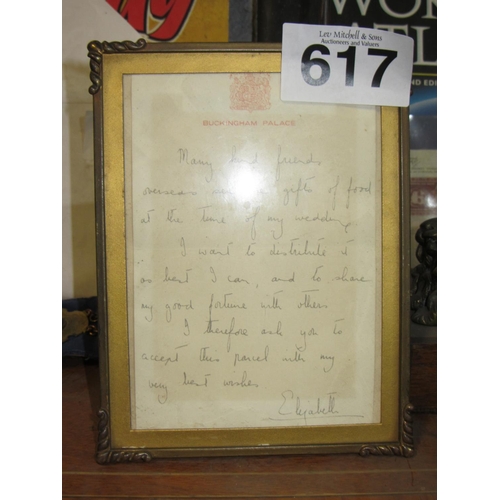 WOR
ATL
ND EDI
Lev Mitchell & Sons
Auctioneers and Valuers
617
BUCKINGHAM PALACE
Many kind friends
overseas gifts of food
at the time of my wedding.
I want to distribute it
as best I can, and to share
my good fortune with others
I therefore ask you to
accept this parcel with my
very best wishes
Elizabeth